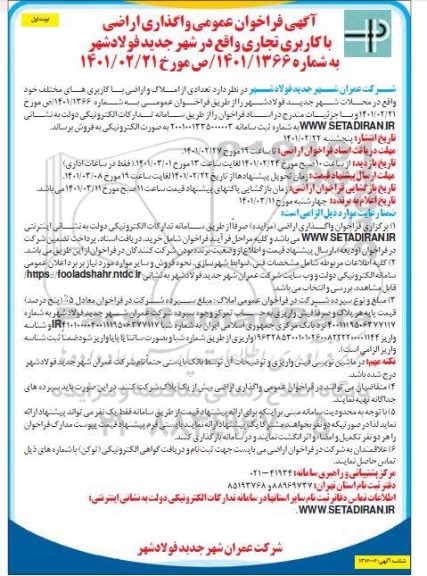 نوبت اول
آگهی فراخوان عمومی واگذاری اراضی
با کاربری تجاری واقع در شهر جدید فولادشهر
به شماره ۱۴۰۱/۱۳۶۶/ص مورخ ۱۴۰۱/۰۲/۲۱
شرکت عمران شهر جدید فولادشهر در نظر دارد تعدادی از املاک و اراضی با کاربری های مختلف خود
واقع در محلات شهر جدید فولادشهر را از طریق فراخوان عمومی به شماره ۱۴۰۱/۱۳۶۶/ص مورخ
۱۴۰۱/۰۲/۲۱ و با جزئیات مندرج در اسناد فراخوان را از طریق سامانه تدارکات الکترونیکی دولت به نشانی
WWW.SETADIRAN.IR به شماره ثبت سامانه به صورت الکترونیکی به فروش برساند.
تاریخ انتشار: پنجشنبه ۱۴۰۱/۰۲/۲۲
مهلت دریافت اسناد فراخوان اراضی: تا ساعت ۱۹ مورخ ۱۴۰۱/۰۲/۲۷
تاریخ بازدید: از ساعت ۱۰ صبح مورخ ۱۴۰۱/۰۲/۲۴ لغایت ساعت ۱۳ مورخ ۱۴۰۱/۰۳/۰۱ (فقط در ساعات اداری)
مهلت ارسال پیشنهاد قیمت: زمان تحویل پیشنهادها از تاریخ لغایت ساعت ۱۹ مورخ ۱۴۰۱/۰۳/۰۸
تاریخ بازگشایی فراخوان اراضی: زمان بازگشایی پاکتهای پیشنهاد قیمت ساعت ۱۱ صبح مورخ می باشد.
تاریخ اعلام به برنده: چهارشنبه مورخ ۱۴۰۱/۰۳/۱۱
ضمنا رعایت موارد ذیل الزامی است:
۱) برگزاری فراخوان واگذاری اراضی (مزایده) صرفا از طریق سامانه تدارکات الکترونیکی دولت به نشانی اینترنتی
WWW.SETADIRAN.IR می باشد و کلیه مراحل فرآیند فراخوان شامل خرید، دریافت اسناد، پرداخت تضمین شرکت
در فراخوان (ودیعه)، ارسال پیشنهاد قیمت و اطلاع از وضعیت برنده بودن شرکت کنندگان در فراخوان از این طریق می باشد.
۲) کلیه اطلاعات مربوطه شامل مشخصات فنی، ضوابط شهرسازی، نحوه فروش و سایر موارد مورد نیاز نیز بر برد اعلان عمومی
سامانه الکترونیکی دولت و وب سایت شرکت عمران شهر جدید فولادشهر به نشانی https://fooladshahr.ntdc.ir
قابل مشاهده، بررسی و انتخاب می باشد.
۳) مبلغ و نوع سپرده شرکت در فراخوان عمومی املاک: مبلغ سپرده شرکت در فراخوان معادل ۵٪ (پنج درصد)
قیمت پایه هر پلاک و صرفا فیش واریزی به حساب تمرکز وجوه سپرده شرکت عمران شهر جدید فولادشهر به شماره
نزد بانک مرکزی جمهوری اسلامی ایران به شماره شبا و شناسه
واریز (واریزی از طریق شماره شبا و بصورت ساتنا یا پایا واریز شود ضمنا ثبت شناسه
واریز الزامی است).
نکته مهم: در ماشین نویسی فیش واریزی و توضیحات آن توسط بانک بایستی حتما نام شرکت عمران شهر جدید فولادشهر
درج شده باشد.
۴) متقاضیان می توانند در فراخوان عمومی واگذاری اراضی بیش از یک پلاک شرکت کنند. در این صورت باید سپرده های
جداگانه تهیه نمایند.
۵) با توجه به محدودیت سامانه مبنی بر اینکه برای ارائه پیشنهاد قیمت از طریق سامانه فقط یک نفر می تواند پیشنهاد ارائه
نماید لذا در صورتیکه دو نفر بخواهند مشترکا یک پیشنهاد ارائه نمایند بایستی فرم پیشنهاد قیمت پیوست مدارک فراخوان
را هر دو نفر تکمیل و امضاء و اثر انگشت نمایند و در سامانه بارگذاری کنند.
۶) علاقمندان به شرکت در فراخوان اراضی می بایست جهت ثبت نام و دریافت گواهی الکترونیکی (توکن) با شماره های ذیل
تماس حاصل نمایند.
مرکز پشتیبانی و راهبری سامانه: ۴۱۹۳۴-۰۲۱
دفتر ثبت نام استان تهران: ۸۸۹۶۹۷۳۷ و ۸۵۱۹۳۷۶۸
اطلاعات تماس دفاتر ثبت نام سایر استانها در سامانه تدارکات الکترونیکی دولت به نشانی اینترنتی:
WWW.SETADIRAN.IR
شرکت عمران شهر جدید فولادشهر
شناسه آگهی: